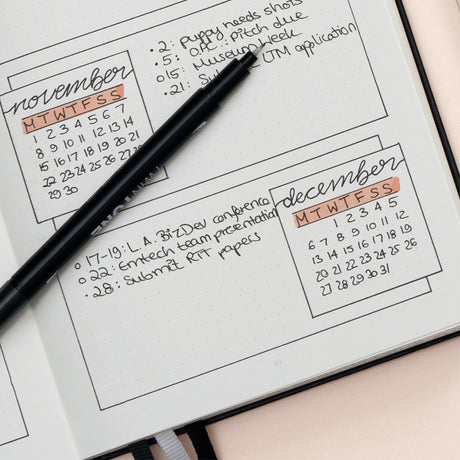 • 2: puppy needs shots
• 5: OPC: pitch due
o 15: Museum Week
• 21: UTM application
november
M T W T F S S
1 2 3 4 5 6 7
8 9 10 11 12 13 14
15 16 17 18 19 20 21
22 23 24 25 26 27
29 30
o 17-19: L.A. BizDev conference
o 22: Emtech team presentation
• 28: Submit RTT papers
december
M T W T F S S
1 2 3 4 5
6 7 8 9 10 11 12
13 14 15 16 17 18 19
20 21 22 23 24 25 26
27 28 29 30 31